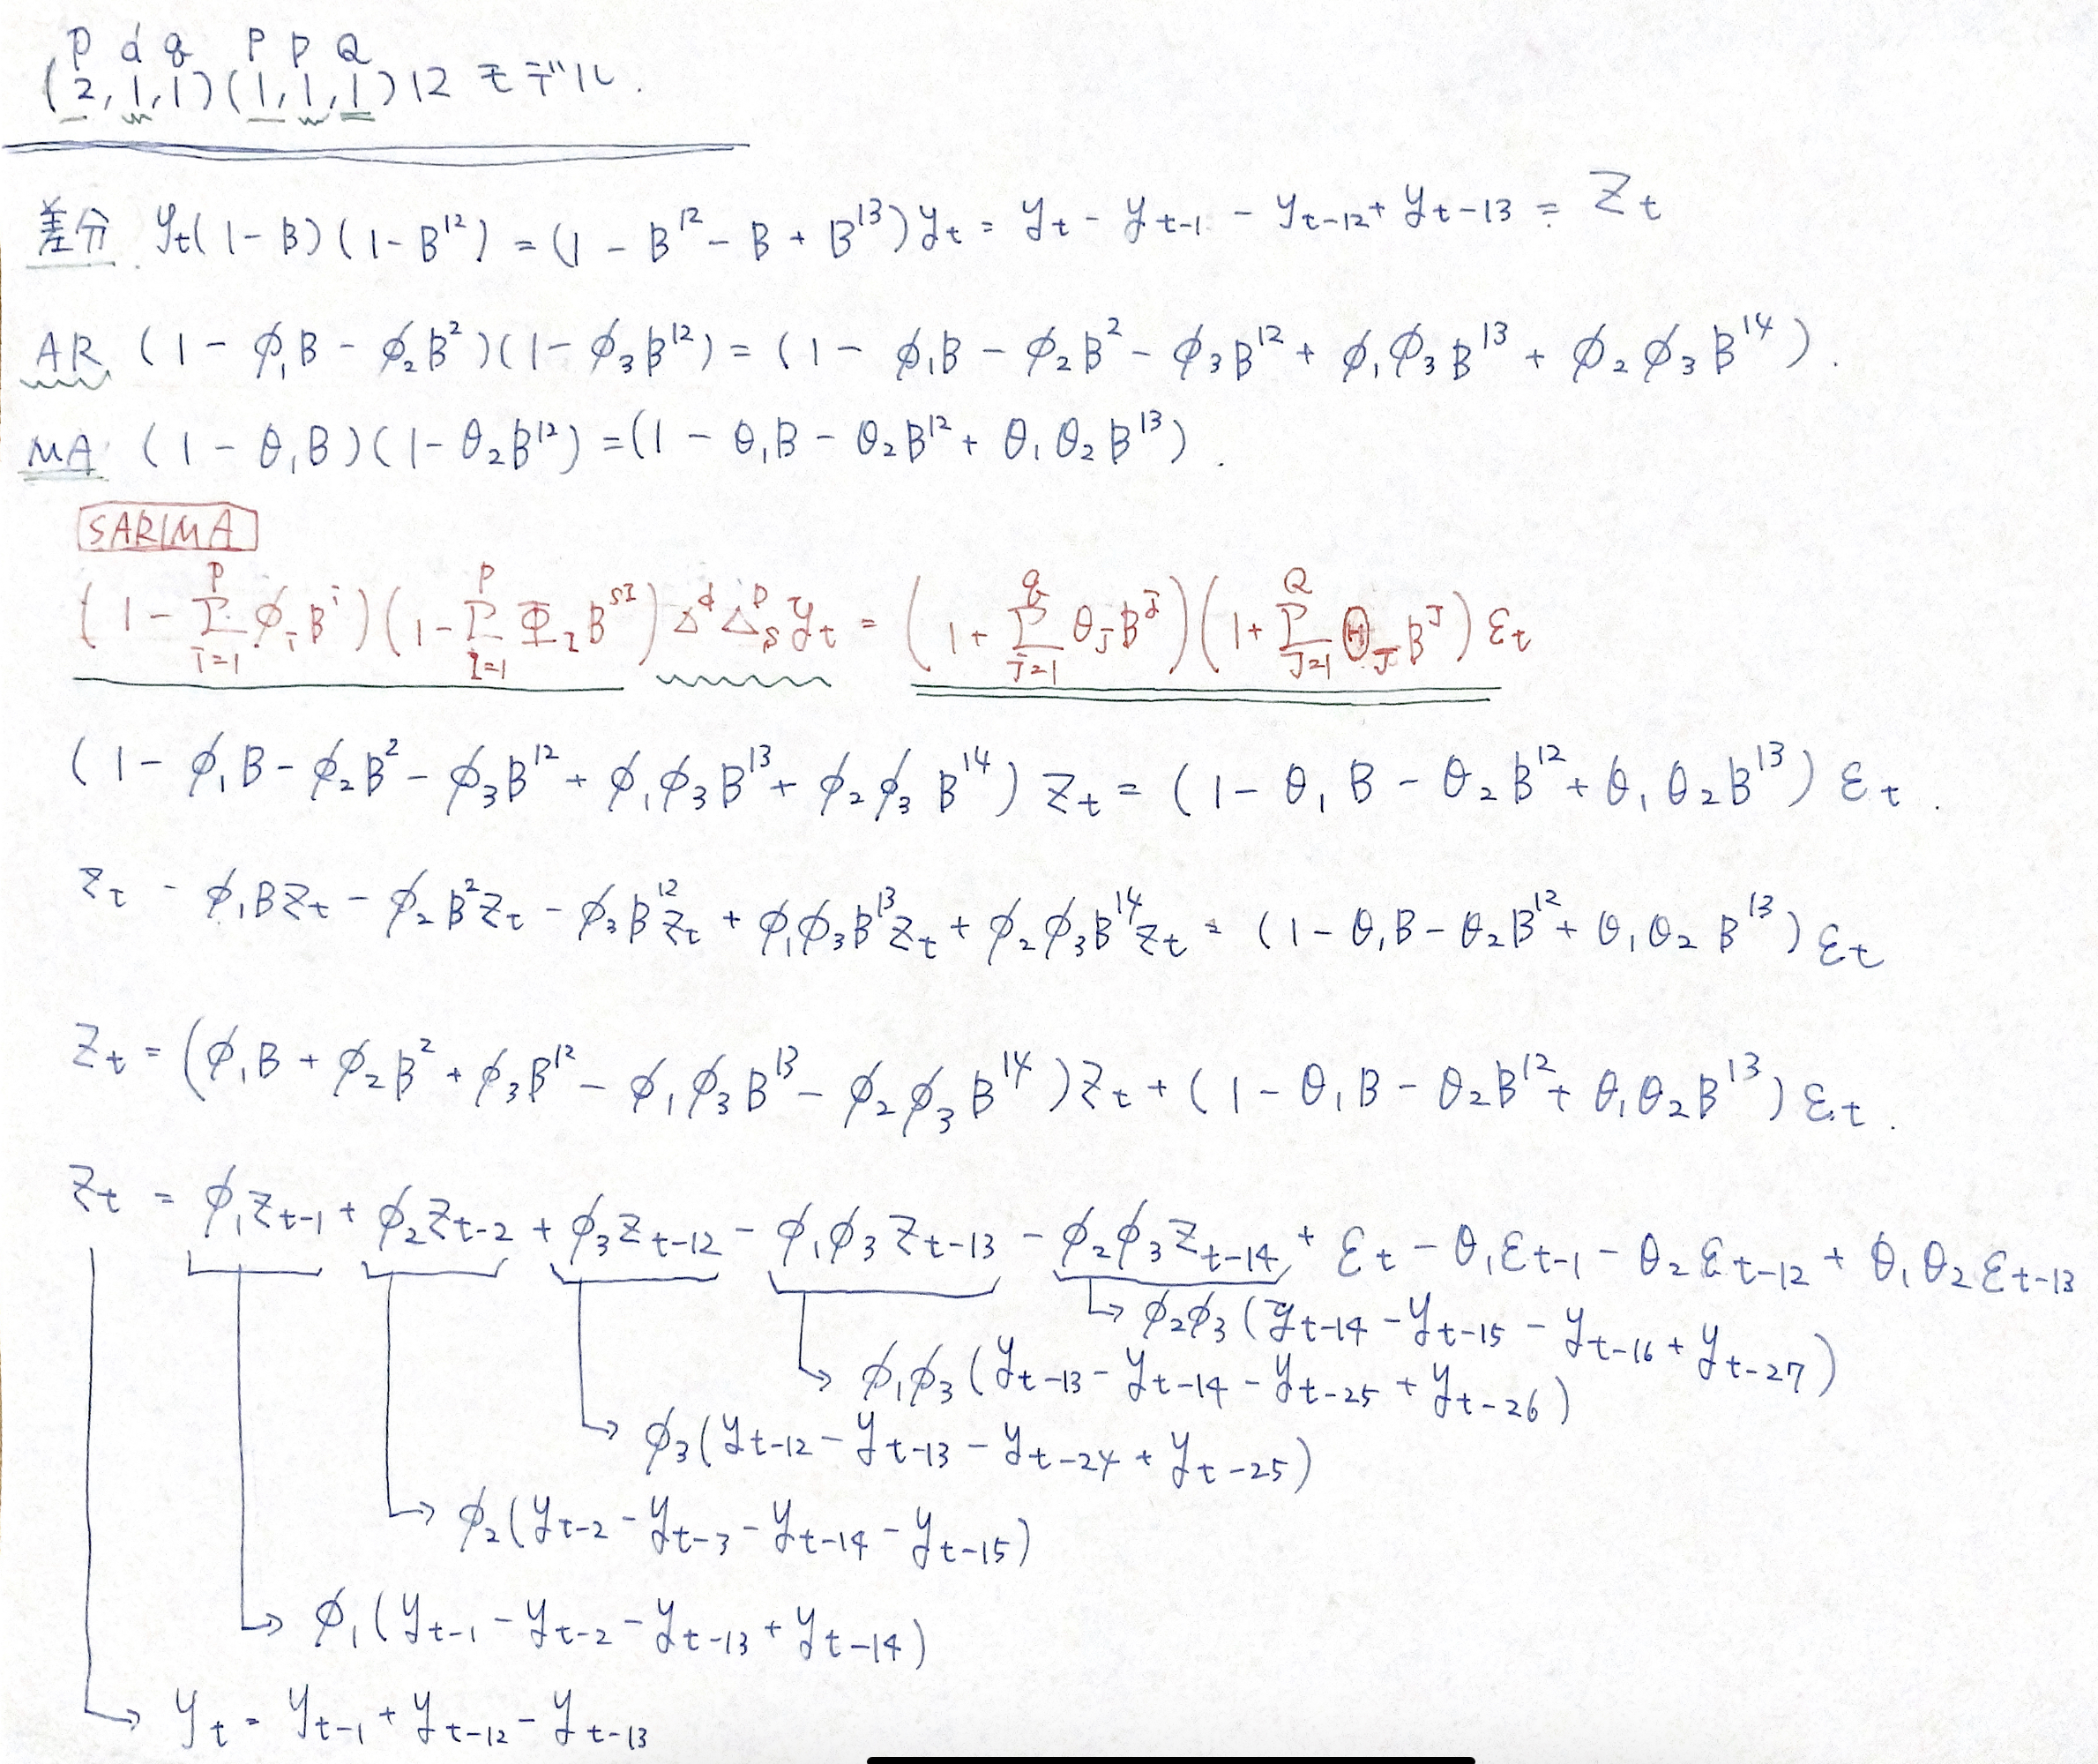 P d q P P Q
(2,1,1)(1,1,1)12 モデル.
差分 yt(1-B)(1-B¹²) = (1 - B¹² - B + B¹³)yt = yt - yt-1 - yt-12 + yt-13 = Zt
AR (1 - φ₁B - φ₂B²)(1 - φ₃B¹²) = (1 - φ₁B - φ₂B² - φ₃B¹² + φ₁φ₃B¹³ + φ₂φ₃B¹⁴).
MA (1 - θ₁B)(1 - θ₂B¹²) = (1 - θ₁B - θ₂B¹² + θ₁θ₂B¹³).
SARIMA
(1 - Σ_{i=1}^{P} φᵢBⁱ)(1 - Σ_{I=1}^{P} Φ_I B^{SI}) Δ^d Δ_S^D yt = (1 + Σ_{j=1}^{q} θ_j B^j)(1 + Σ_{J=1}^{Q} Θ_J B^J) εt
(1 - φ₁B - φ₂B² - φ₃B¹² + φ₁φ₃B¹³ + φ₂φ₃B¹⁴) Zt = (1 - θ₁B - θ₂B¹² + θ₁θ₂B¹³) εt.
Zt - φ₁BZt - φ₂B²Zt - φ₃B¹²Zt + φ₁φ₃B¹³Zt + φ₂φ₃B¹⁴Zt = (1 - θ₁B - θ₂B¹² + θ₁θ₂B¹³) εt
Zt = (φ₁B + φ₂B² + φ₃B¹² - φ₁φ₃B¹³ - φ₂φ₃B¹⁴)Zt + (1 - θ₁B - θ₂B¹² + θ₁θ₂B¹³) εt.
Zt = φ₁Zt-1 + φ₂Zt-2 + φ₃Zt-12 - φ₁φ₃Zt-13 - φ₂φ₃Zt-14 + εt - θ₁εt-1 - θ₂εt-12 + θ₁θ₂εt-13
→ φ₂φ₃(yt-14 - yt-15 - yt-16 + yt-27)
→ φ₁φ₃(yt-13 - yt-14 - yt-25 + yt-26)
→ φ₃(yt-12 - yt-13 - yt-24 + yt-25)
→ φ₂(yt-2 - yt-3 - yt-14 - yt-15)
→ φ₁(yt-1 - yt-2 - yt-13 + yt-14)
→ yt = yt-1 + yt-12 - yt-13